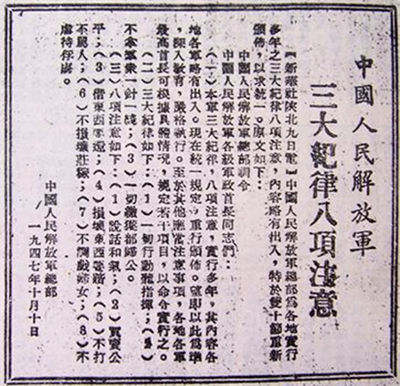 中國人民解放軍
三大紀律八項注意
【新華社陝北九日電】中國人民解放軍總部為各地實行
多年之三大紀律八項注意,內容略有出入,特於雙十節重新
頒佈,以求統一。原文如下:
中國人民解放軍總部訓令
中國人民解放軍各級軍政首長同志們:
(一)本軍三大紀律,八項注意,實行多年,其內容各
地各軍略有出入。現在統一規定,重行頒佈。望即以此為準
,深入教育,嚴格執行。至於其他應當注意事項,各地各軍
最高首長可根據具體情況,規定若干項目,以命令實行之。
(二)三大紀律如下:(1)一切行動聽指揮;(2)
不拿羣衆一針一綫;(3)一切繳獲歸公。
(三)八項注意如下:(1)說話和氣;(2)買賣公
平;(3)借東西要還;(4)損壞東西要賠;(5)不打
人罵人;(6)不損壞莊稼;(7)不調戲婦女;(8)不
虐待俘虜。
中國人民解放軍總部
一九四七年十月十日